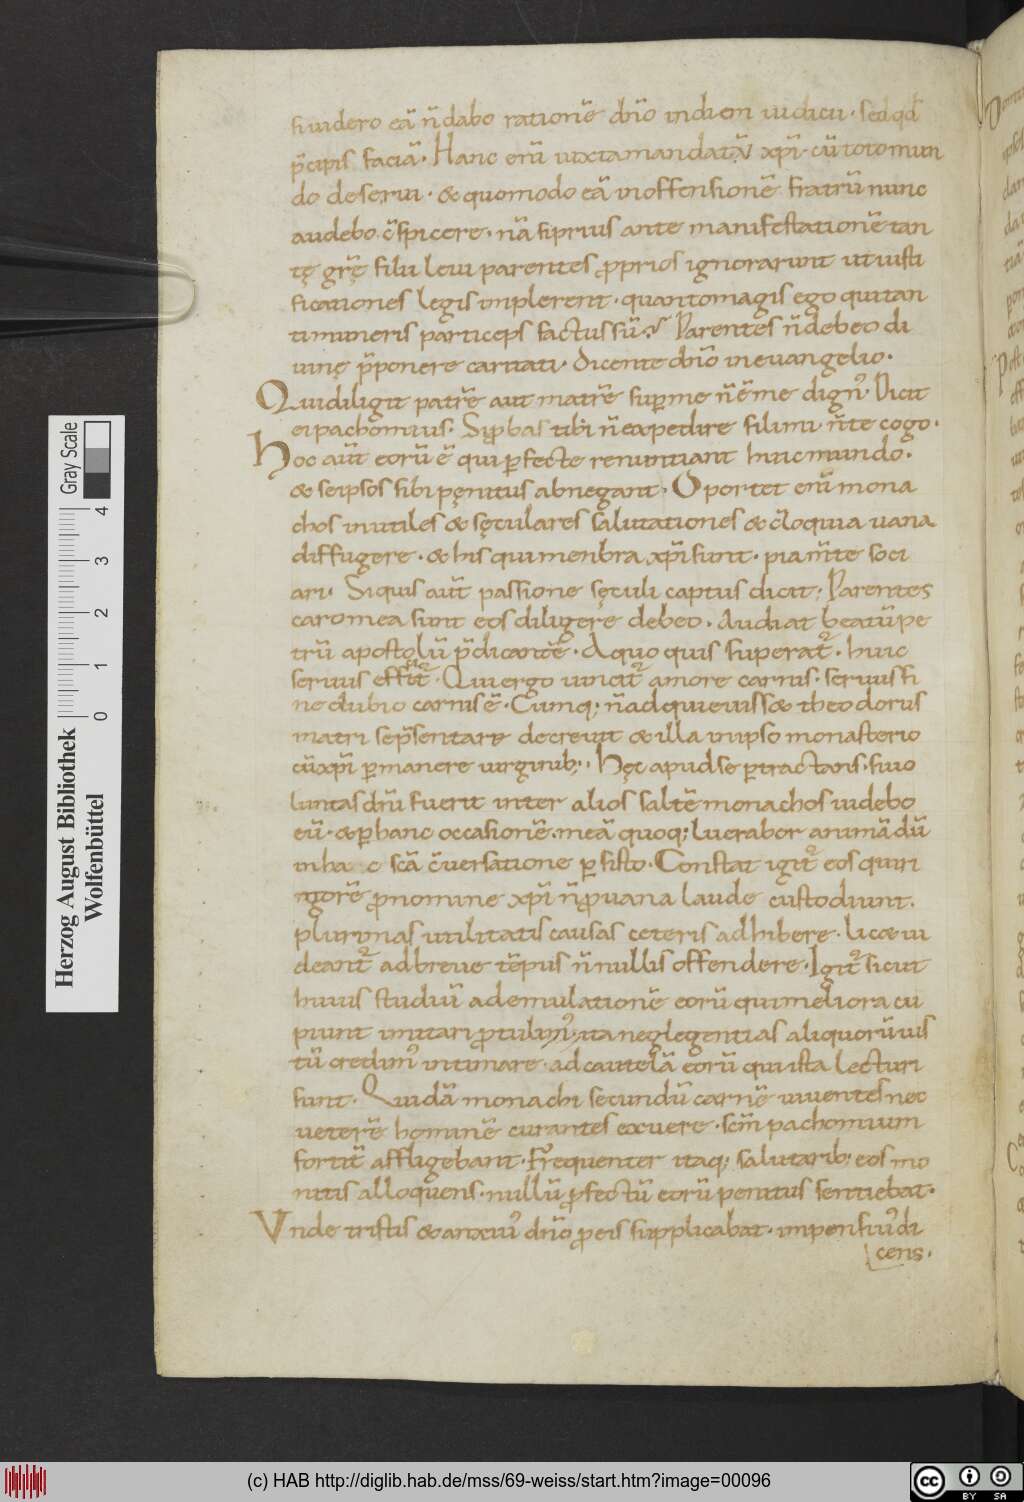 si videro eā n̄ dabo rationē dn̄o in diem iudicii · sed qd̄
p̄cipis faciā · Hanc enī iuxta mandatū xp̄i · cū toto mun
do deserui · & quomodo eā in offensionē fratrū nunc
audebo c̄spicere · nā si prius ante manifestationē tan
tę gr̄ę filii leui parentes proprios ignorarunt ut iusti
ficationes legis implerent · quanto magis ego qui tan
ti muneris particeps factus sū? Parentes n̄ debeo di
uinę p̄ponere caritati · dicente dn̄o in euangelio ·
Qui diligit patrē aut matrē sup me n̄ ē me dign' · Dicit
ei pachomius · Si probas tibi n̄ expedire fili mi · n̄ te cogo ·
Hoc aūt eorū ē qui pfecte renuntiant huic mundo ·
& seipsos sibi pęnitus abnegant · Oportet enī mona
chos inutiles & sęculares salutationes & c̄loquia uana
diffugere · & his qui menbra xp̄i sunt · pia m̄te soci
ari · Si quis aūt passione sęculi captus dicit · Parentes
caro mea sunt eos diligere debeo · Audiat beatū pe
trū apostolū p̄dicantē · A quo quis superat̄ · huic
seruus efficit̄ · Qui ergo uincit̄ amore carnis · seruus si
ne dubio carnis ē · Cumq; n̄ adquieuiss& theodorus
matri sep̄sentare decreuit & illa in ipso monasterio
cū xp̄i pmanere uirginib; · Hęc apud se ptractans · si uo
luntas dn̄i fuerit inter alios saltē monachos uidebo
eū · & p hanc occasionē meā quoq; lucrabor animā dū
in ha c scā c̄uersatione psisto · Constat igit̄ eos qui ri
gorē pro nomine xp̄i n̄ pro uana laude custodiunt ·
plurimas utilitatis causas ceteris adhibere · lic& ui
deant̄ ad breue tēpus n̄nullis offendere · Igit̄ sicut
huius studiū ad emulationē eorū qui meliora cu
piunt imitari protulim' · ita neglegentias aliquorū uis
tū credim' intimare · ad cautelā eorū qui ista lecturi
sunt · Quidā monachi secundū carnē uiuentes nec
ueterē hominē curantes exuere · scm̄ pachomium
fortit̄ affligebant · Frequenter itaq; salutarib; eos mo
nitis alloquens · nullū profectū eorū penitus sentiebat ·
Vnde tristis & anxius dn̄o pro eis supplicabat · impensius di
cens ·
Herzog August Bibliothek
Wolfenbüttel
Gray Scale
0 1 2 3 4
(c) HAB http://diglib.hab.de/mss/69-weiss/start.htm?image=00096
cc BY SA